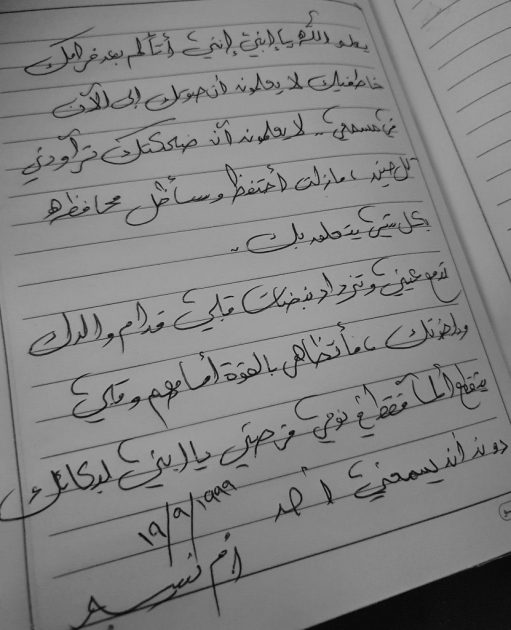 يعلم الله يا إبني إنني أتألم بعد فراقك
خاطفينك لا يعلمون أن صوتك إلى الآن
في مسمعي .. لا يعلمون أن ضحكتك تراودني
كل حين ، مازلت أحتفظ وسأظل محافظه
بكل شيء يتعلق بك ..
تدمع عيني وتزداد نبضات قلبي قدام والدك
وإخوتك ، فأتظاهر بالقوة أمامهم وقلبي
يتقطع ألماً فقط في نومي فرصتي يا ابني لبكائك
دون أن يسمعني أحد
١٩/٩/١٩٩٩
أم نسيم